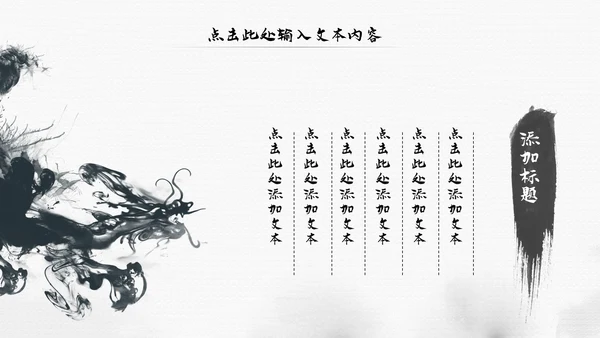 点击此处输入文本内容
添加标题
点击此处添加文本
点击此处添加文本
点击此处添加文本
点击此处添加文本
点击此处添加文本
点击此处添加文本